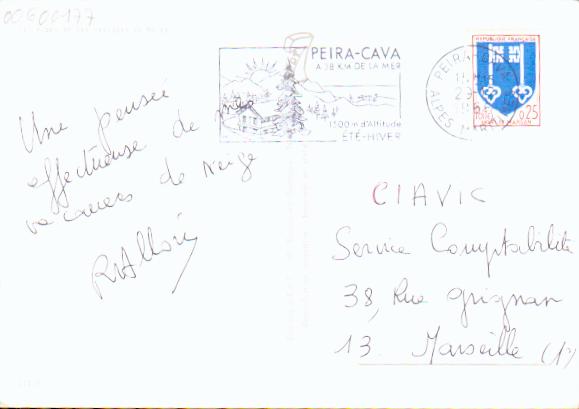 00600177
PEIRA-CAVA
A 38 KM DE LA MER
1500 m d'Altitude
ÉTÉ-HIVER
REPUBLIQUE FRANÇAISE
0,25
Une pensée
affectueuse de mes
vacances de Neige
R. Allori
CIAVIC
Service Comptabilité
38, Rue Grignan
13. Marseille (1°)